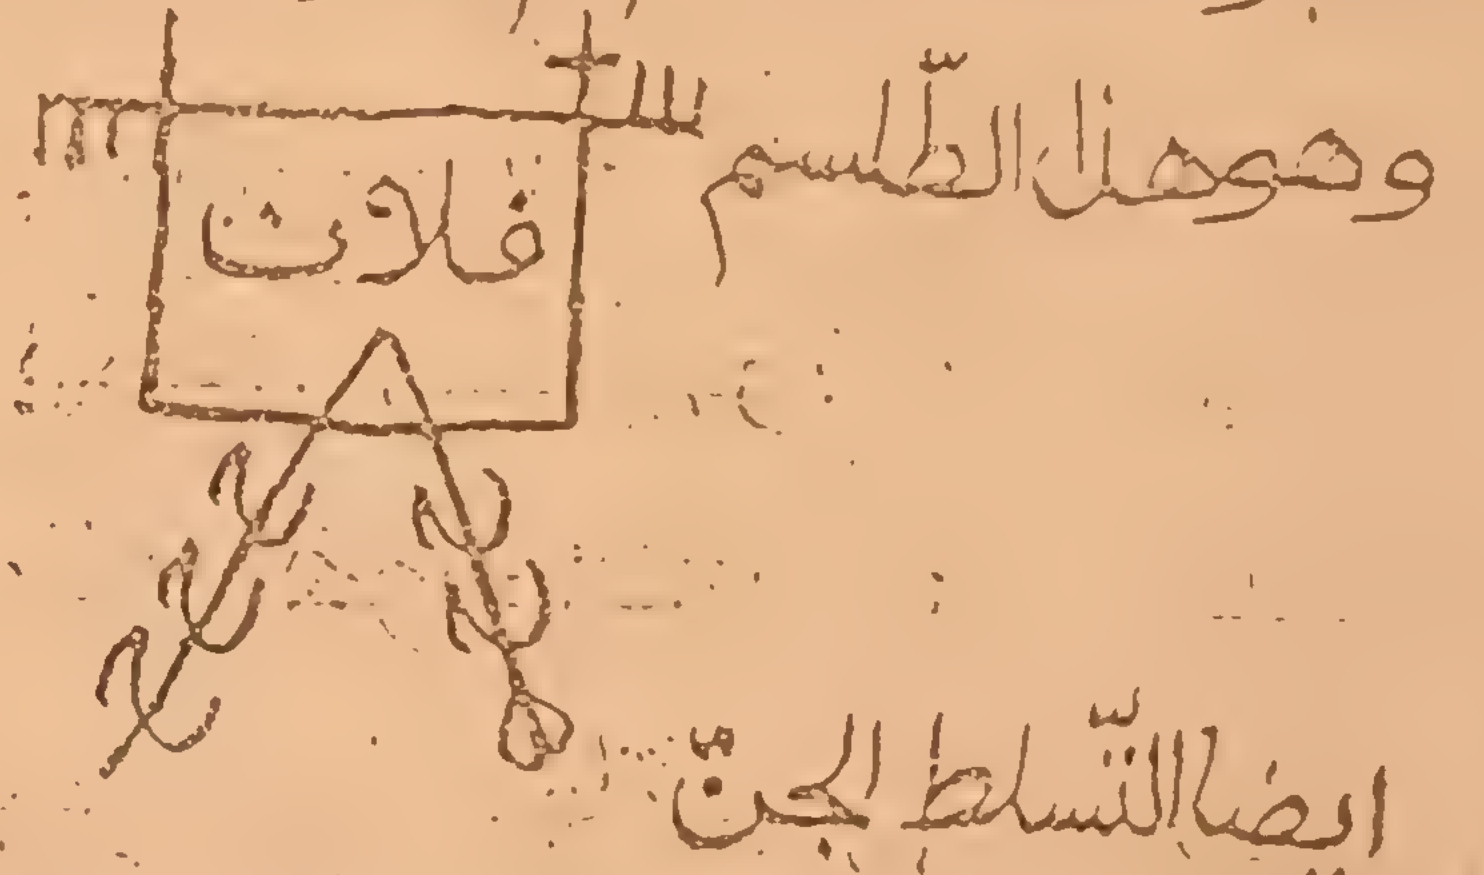 وهو هذا الطّلسم
فلات
ايضا التّسلط الجنّ